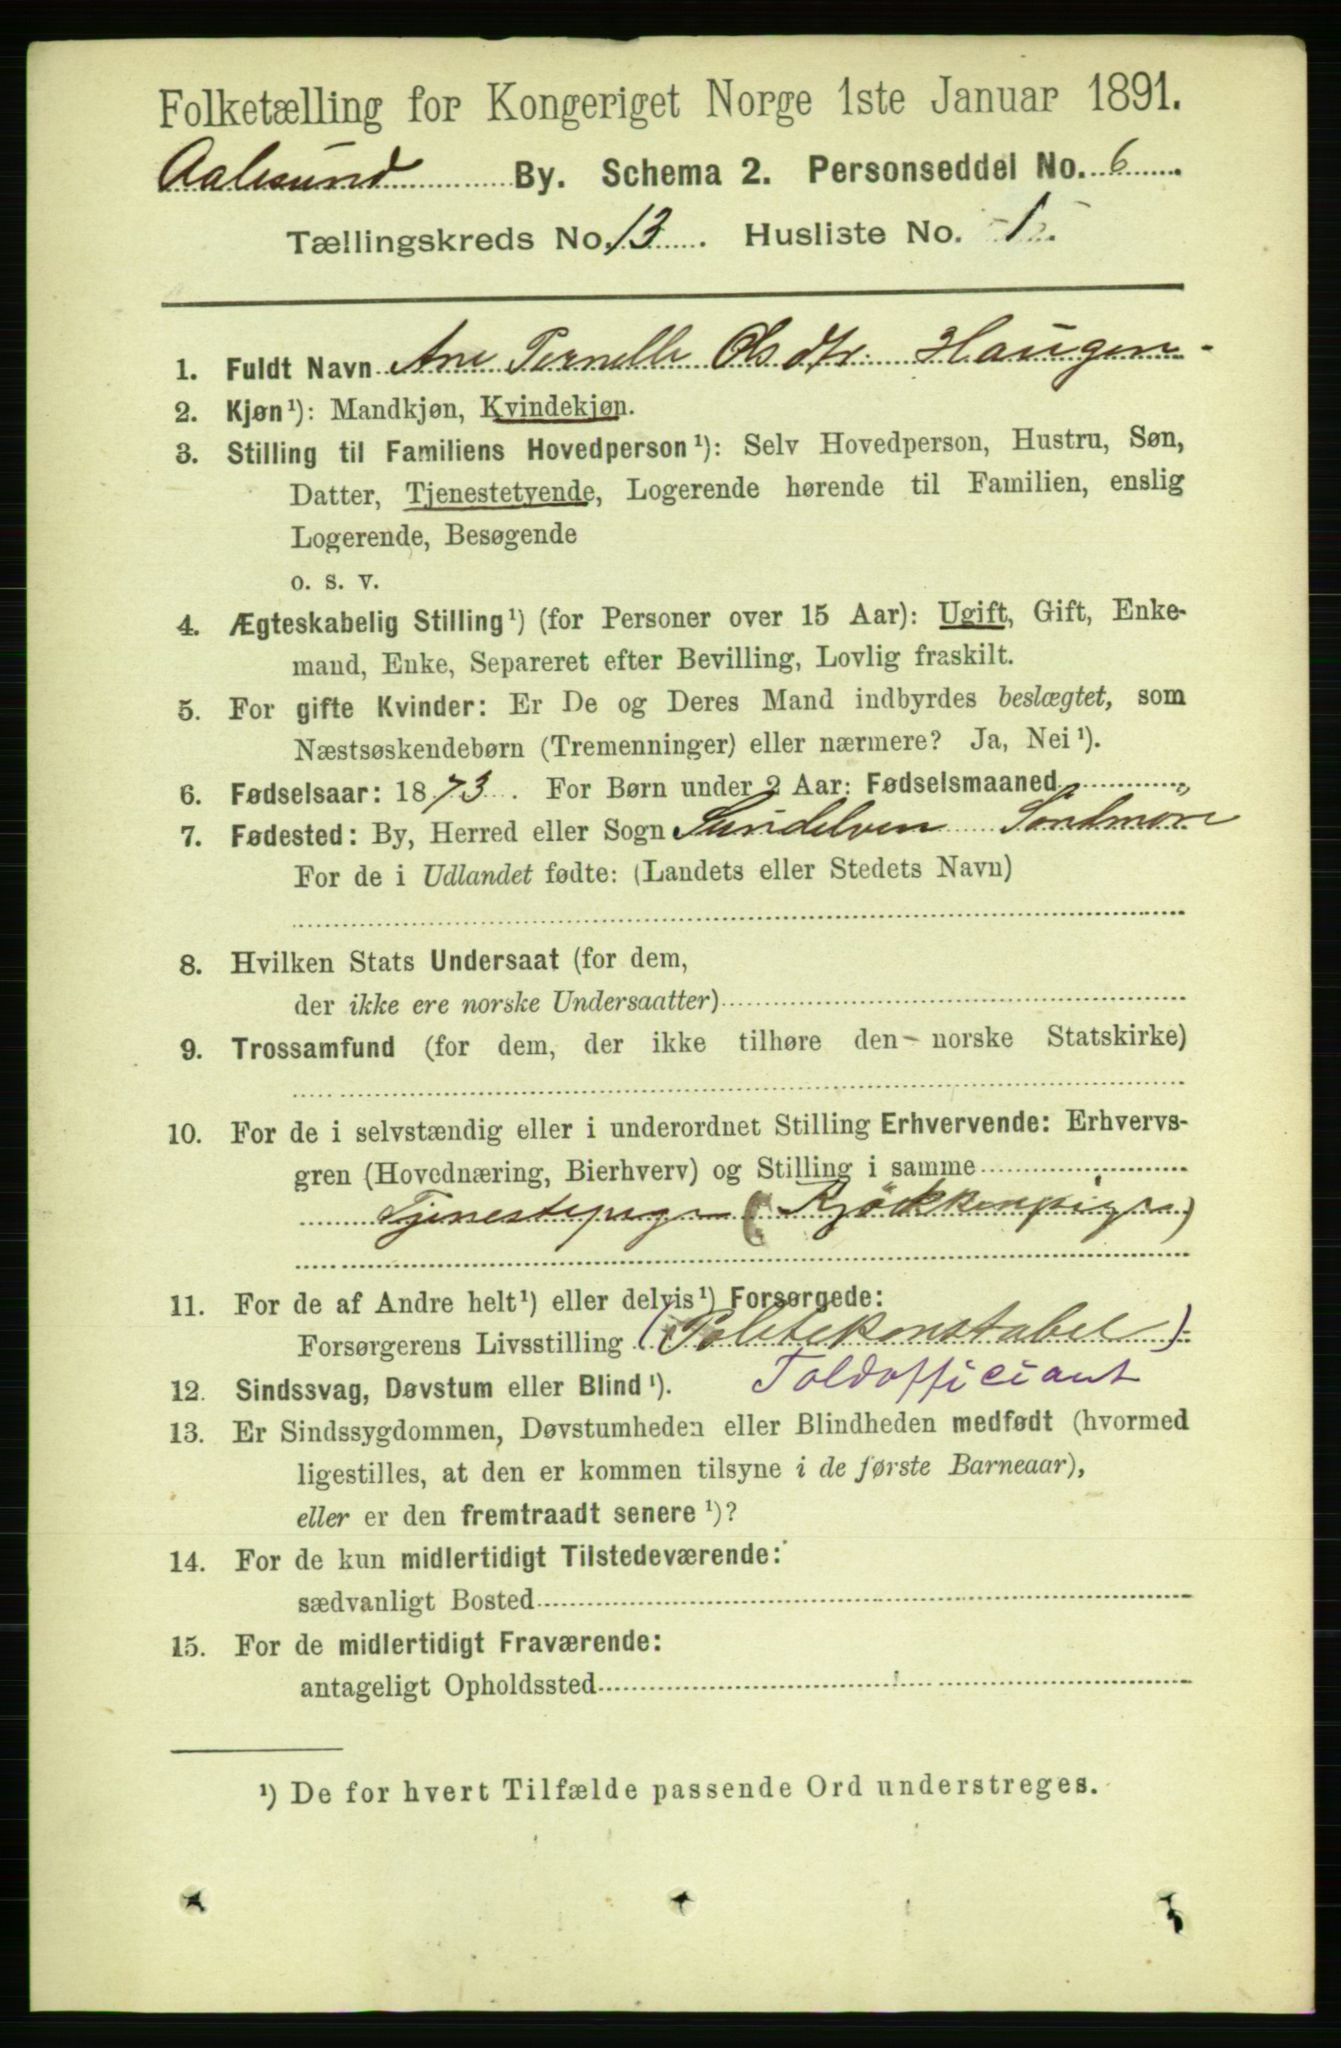 Folketælling for Kongeriget Norge 1ste Januar 1891.
Aalesund By. Schema 2. Personseddel No. 6
Tællingskreds No. 13. Husliste No. 1.
1. Fuldt Navn Ane Pernelle Olsdtr. Haugen
2. Kjøn¹): Mandkjøn, Kvindekjøn.
3. Stilling til Familiens Hovedperson¹): Selv Hovedperson, Hustru, Søn,
Datter, Tjenestetyende, Logerende hørende til Familien, enslig
Logerende, Besøgende
o. s. v.
4. Ægteskabelig Stilling¹) (for Personer over 15 Aar): Ugift, Gift, Enke-
mand, Enke, Separeret efter Bevilling, Lovlig fraskilt.
5. For gifte Kvinder: Er De og Deres Mand indbyrdes beslægtet, som
Næstsøskendebørn (Tremenninger) eller nærmere? Ja, Nei¹).
6. Fødselsaar: 1873. For Børn under 2 Aar: Fødselsmaaned
7. Fødested: By, Herred eller Sogn Sundelven Söndmöre
For de i Udlandet fødte: (Landets eller Stedets Navn)
8. Hvilken Stats Undersaat (for dem,
der ikke ere norske Undersaatter)
9. Trossamfund (for dem, der ikke tilhøre den norske Statskirke)
10. For de i selvstændig eller i underordnet Stilling Erhvervende: Erhvervs-
gren (Hovednæring, Bierhverv) og Stilling i samme
Tjenestepige (Kjökkenpige)
11. For de af Andre helt¹) eller delvis¹) Forsørgede:
Forsørgerens Livsstilling (Politikonstabel)
12. Sindssvag, Døvstum eller Blind¹). Toldofficiant
13. Er Sindssygdommen, Døvstumheden eller Blindheden medfødt (hvormed
ligestilles, at den er kommen tilsyne i de første Barneaar),
eller er den fremtraadt senere¹)?
14. For de kun midlertidigt Tilstedeværende:
sædvanligt Bosted
15. For de midlertidigt Fraværende:
antageligt Opholdssted
¹) De for hvert Tilfælde passende Ord understreges.